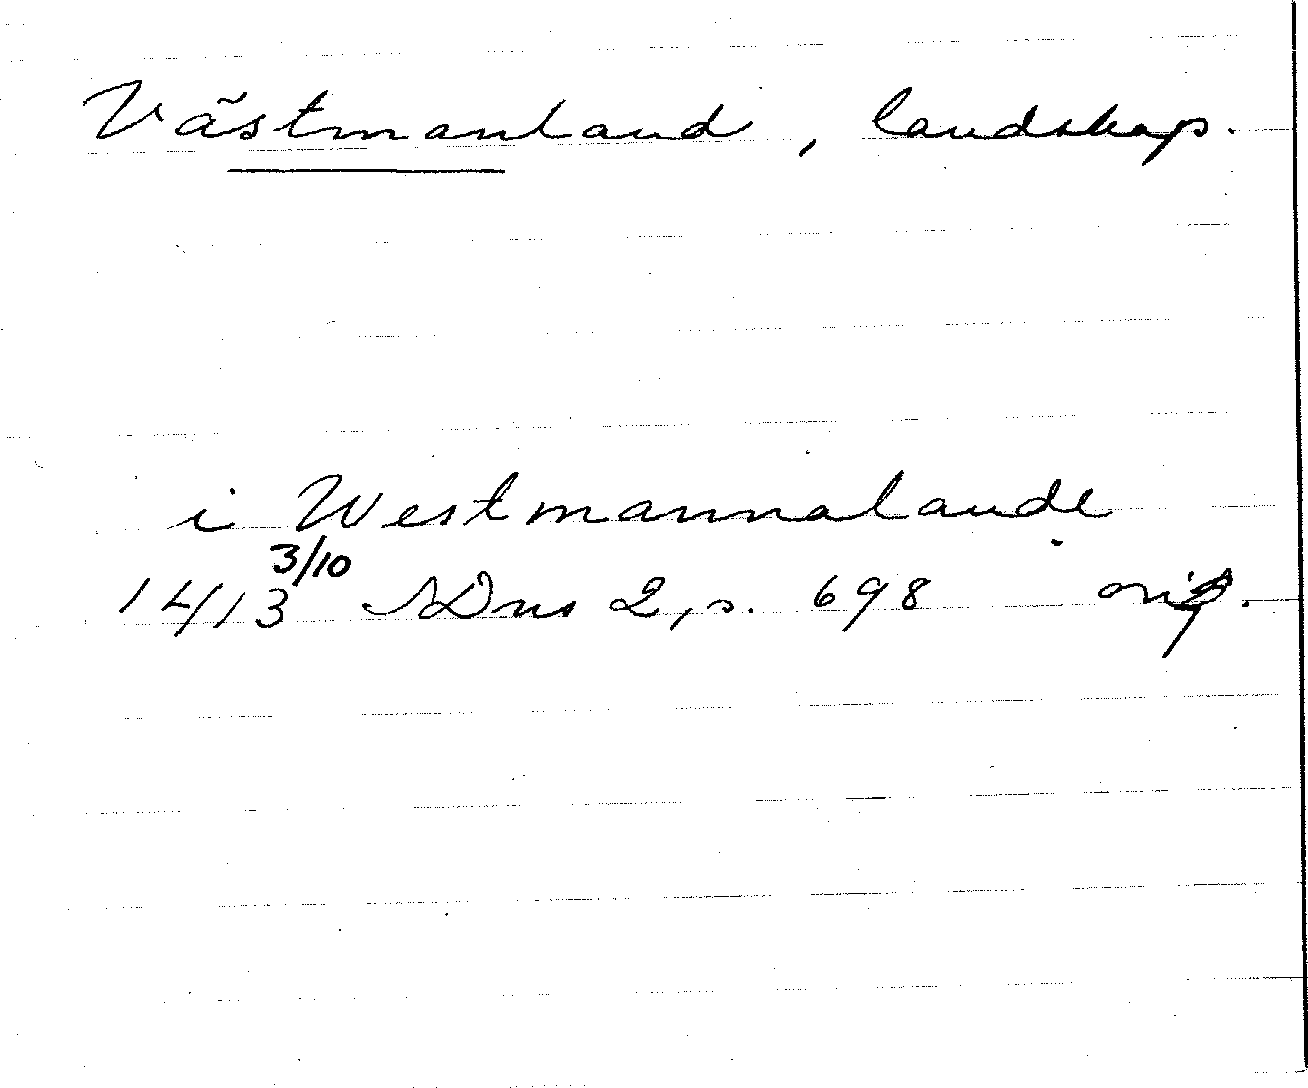 Västmanland, landskap.
i Westmannalande
1413 3/10 SDns 2, s. 698 orig.